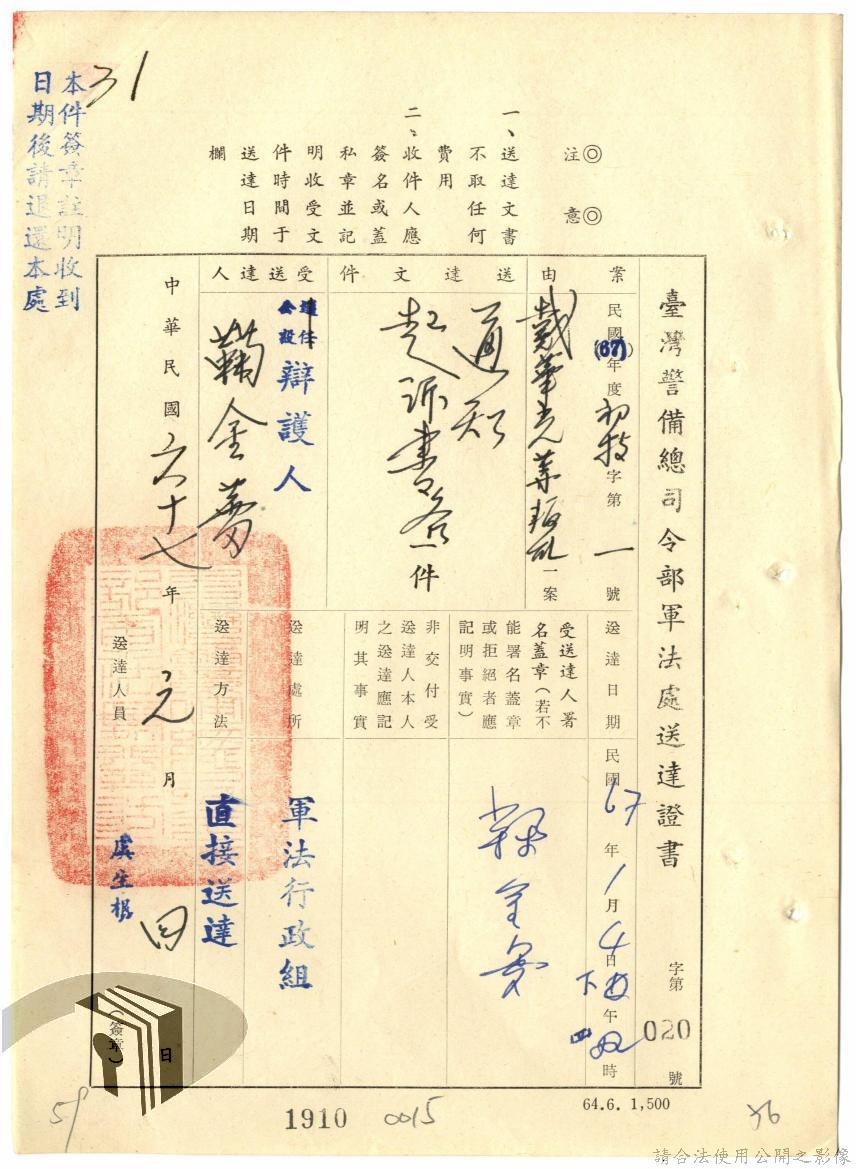 31
本件簽章註明收到
日期後請退還本處
注意
一、送達文書
不取任何
費用
二、收件人應
簽名或蓋
私章並記
明收受文
件時間于
送達日期
欄
臺灣警備總司令部軍法處送達證書
字第020號
案由
民國(67)年度初特字第一號
戴華光等叛亂一案
送達文件
通知
起訴書各一件
受送達人
選任
公設
辯護人
鞠金蕾
送達日期
民國67年1月4日下午四時
受送達人署
名蓋章(若不
能署名蓋章
或拒絕者應
記明事實)
鞠金蕾
非交付受
送達人本人
之送達應記
明其事實
送達處所
軍法行政組
送達方法
直接送達
中華民國六十七年元月四日
送達人員
虞生根
(簽章)
59
1910
0015
64.6. 1,500
請合法使用公開之影像